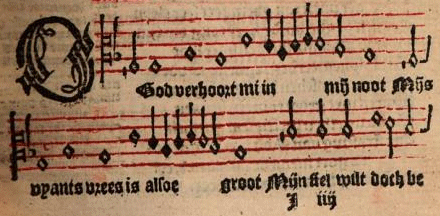 O God verhoort mi in mijn noot Mijs
vyants vrees is alsoe groot Mijn siel wilt doch be
J iiij